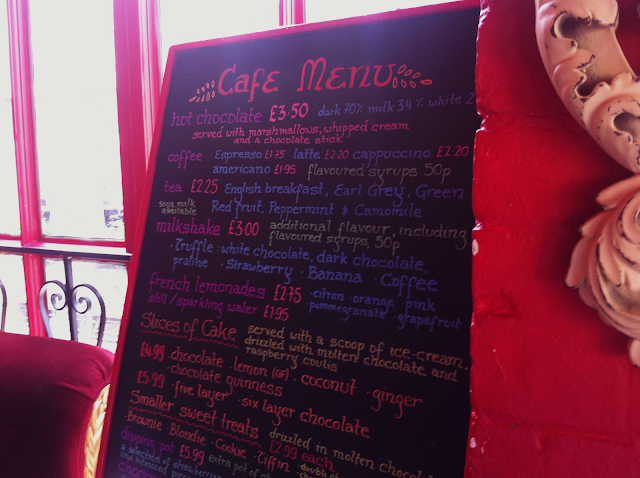 Cafe Menu
hot chocolate £3.50 dark 70% milk 34% white 2
served with marshmallows, whipped cream
and a chocolate stick
coffee Espresso £1.75 latte £2.20 cappuccino £2.20
americano £1.95 flavoured syrups 50p
tea £2.25 English breakfast, Earl Grey, Green
soya milk
available
Red fruit, Peppermint & Camomile
milkshake £3.00 additional flavour, including
flavoured syrups, 50p
· Truffle: white chocolate, dark chocolate,
praline · Strawberry · Banana · Coffee
french lemonades £2.75 · citron · orange · pink
pommegranate · grapefruit
still/sparkling water £1.95
Slices of Cake served with a scoop of ice-cream,
drizzled with molten chocolate and
raspberry coulis
£4.99 · chocolate · lemon (GF) · coconut · ginger
· chocolate guinness
£5.99 · five layer · six layer chocolate
Smaller sweet treats drizzled in molten chocol
£2.99 each
· Brownie · Blondie · Cookie · Tiffin
dipping pot £5.99 extra pot of
a selection of strawberries